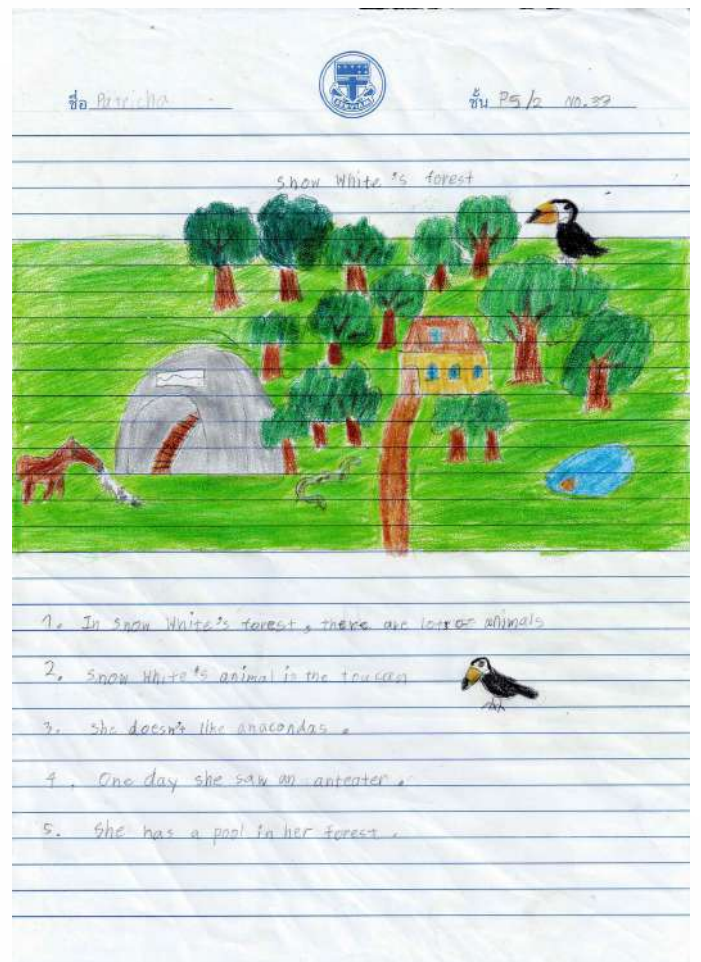 ชื่อ
ชั้น P5/2 No.37
Snow White's forest
1. In Snow White's forest, there are lots of animals
2. Snow White's animal is the toucan
3. She doesn't like anacondas.
4. One day she saw an anteater.
5. She has a pool in her forest.